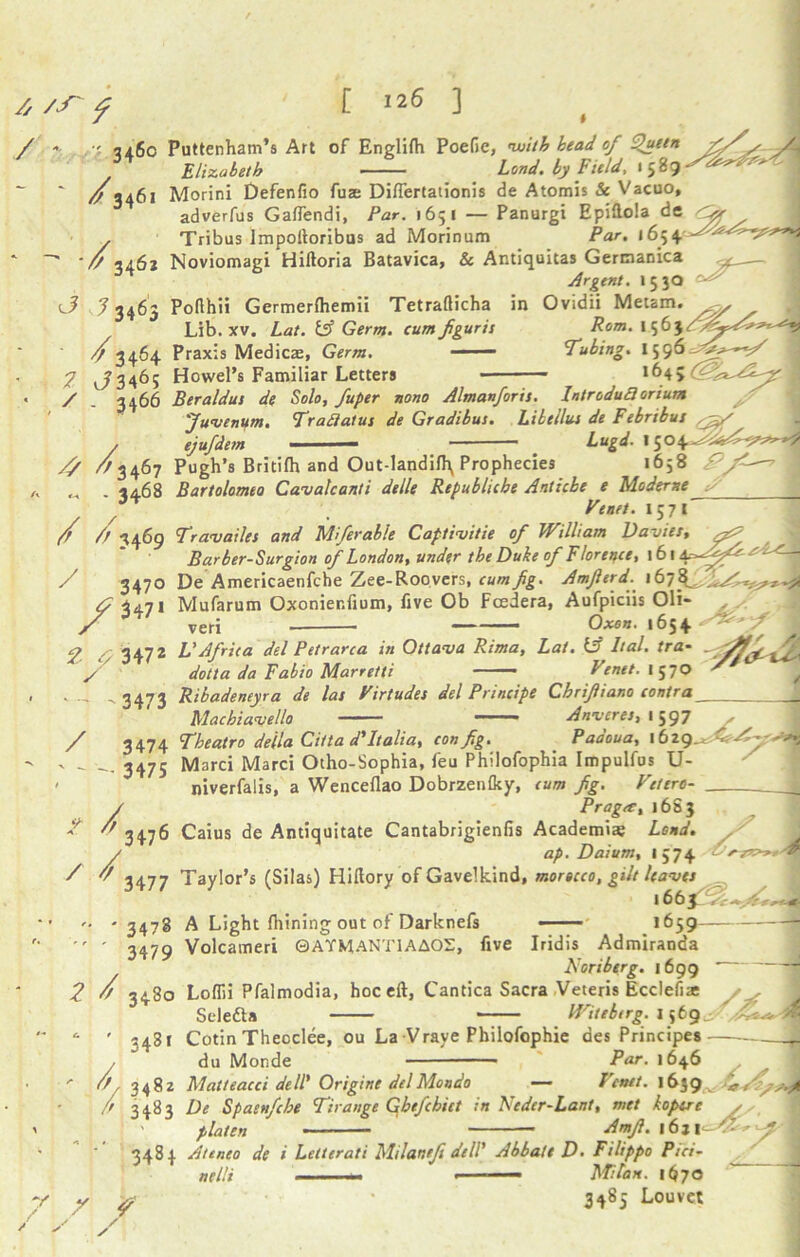 [ 126 ]
3460 Puttenham's Art of Engliſh Poeſie, with head of Queen
Elizabeth —— Lond. by Field, 1589
3461 Morini Defenſio ſuæ Diſſertationis de Atomis & Vacuo,
adverſus Gaſſendi, Par. 1651 — Panurgi Epiſtola de
Tribus Impoſtoribus ad Morinum Par. 1654
3462 Noviomagi Hiſtoria Batavica, & Antiquitas Germanica
Argent. 1530
3463 Poſthii Germerſhemii Tetraſticha in Ovidii Metam.
Lib. xv. Lat. & Germ. cum figuris Rom. 1563
3464 Praxis Medicæ, Germ. —— Tubing. 1596
3465 Howel's Familiar Letters —— 1645
3466 Beraldus de Solo, ſuper nono Almanſoris. Introductorium
Juvenum. Tractatus de Gradibus. Libellus de Febribus
ejuſdem —— —— Lugd. 1504
3467 Pugh's Britiſh and Out-landiſh Prophecies 1658
3468 Bartolomeo Cavalcanti delle Republiche Antiche e Moderne
Venet. 1571
3469 Travailes and Miſerable Captivitie of William Davies,
Barber-Surgion of London, under the Duke of Florence, 1614
3470 De Americaenſche Zee-Roovers, cum fig. Amſterd. 1678
3471 Muſarum Oxonienſium, five Ob Fœdera, Auſpiciis Oli-
veri —— —— Oxon. 1654
3472 L'Africa del Petrarca in Ottava Rima, Lat. & Ital. tra-
dotta da Fabio Marretti —— Venet. 1570
3473 Ribadeneyra de las Virtudes del Principe Chriſtiano contra
Machiavello —— —— Anveres, 1597
3474 Theatro della Citta d'Italia, con fig. Padoua, 1629
3475 Marci Marci Otho-Sophia, ſeu Philoſophia Impulſus U-
niverſalis, a Wenceſlao Dobrzenſky, cum fig. Vetero-
Pragæ, 1683
3476 Caius de Antiquitate Cantabrigienſis Academiæ Lond.
ap. Daium, 1574
3477 Taylor's (Silas) Hiſtory of Gavelkind, morocco, gilt leaves
1663
3478 A Light ſhining out of Darkneſs —— 1659
3479 Volcameri ΘΑΥΜΑΝΤΙΑΔΟΣ, five Iridis Admiranda
Noriberg. 1699
3480 Loſſii Pſalmodia, hoc eſt, Cantica Sacra Veteris Eccleſiæ
Selecta —— —— Witeberg. 1569
3481 Cotin Theoclée, ou La Vraye Philoſophie des Principes
du Monde —— Par. 1646
3482 Matteacci dell' Origine del Mondo — Venet. 1639
3483 De Spaenſche Tirange Gheſchiet in Neder-Lant, met kopere
platen —— —— Amſt. 1621
3484 Ateneo de i Letterati Milaneſi dell' Abbate D. Filippo Pici-
nelli —— —— Milan. 1670
3485 Louvet